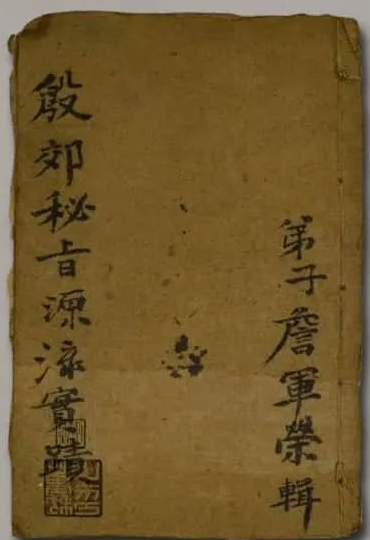 殷郊秘旨源流實蹟
弟子詹軍榮輯